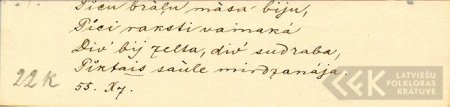 Pìcu brāļu māsa biju,
Pìci raksti vaiņakâ
Div' bij zelta, div' sudraba,
Pìktais saule mirdzanâja.
55. Xy.
22 K
LATVIEŠU
FOLKLORAS
KRĀTUVE